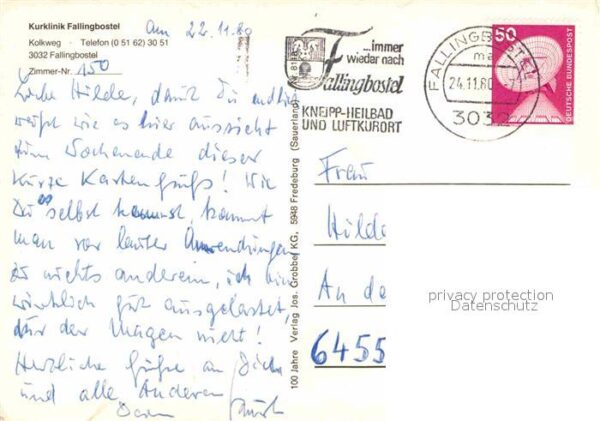 Kurklinik Fallingbostel
Kolkweg · Telefon (0 51 62) 30 51
3032 Fallingbostel
Zimmer-Nr. 150
Am 22.11.80
Liebe Hilde, damit Du endlich
weißt wie es hier aussieht
zum Wochenende dieser
kurze Kartengruß! Wie
Du es selbst kennst, kommt
man vor lauter Anwendungen
zu nichts anderem, ich bin
wirklich gut ausgelastet,
nur der Magen nicht!
Herzliche Grüße an Dich
und alle Anderen
100 Jahre Verlag Jos. Grobbel KG, 5948 Fredeburg (Sauerland)
...immer
wieder nach
Fallingbostel
KNEIPP-HEILBAD
UND LUFTKURORT
FALLINGBOSTEL 1
ma
24.11.80
3032
50
DEUTSCHE BUNDESPOST
Frau
Hilde
An de
6455
privacy protection
Datenschutz